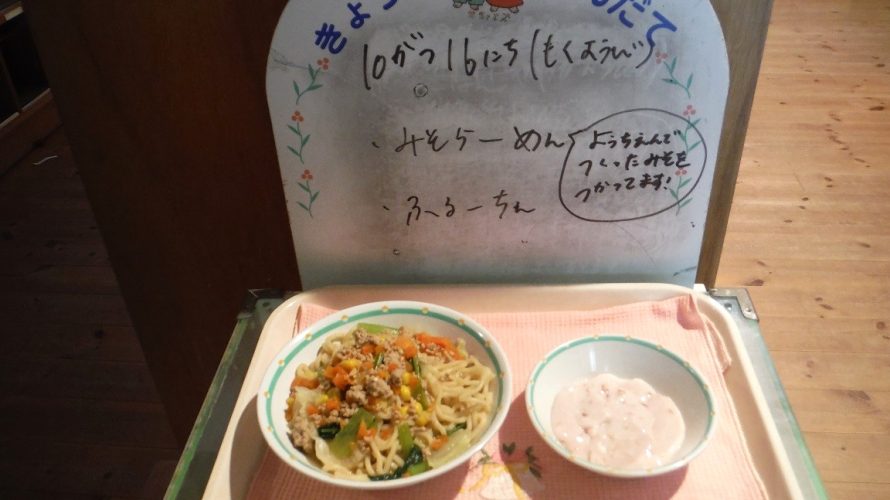 10がつ16にち(もくようび)
・みそらーめん
ようちえんで
つくったみそを
つかってます!
・ふるーちぇ